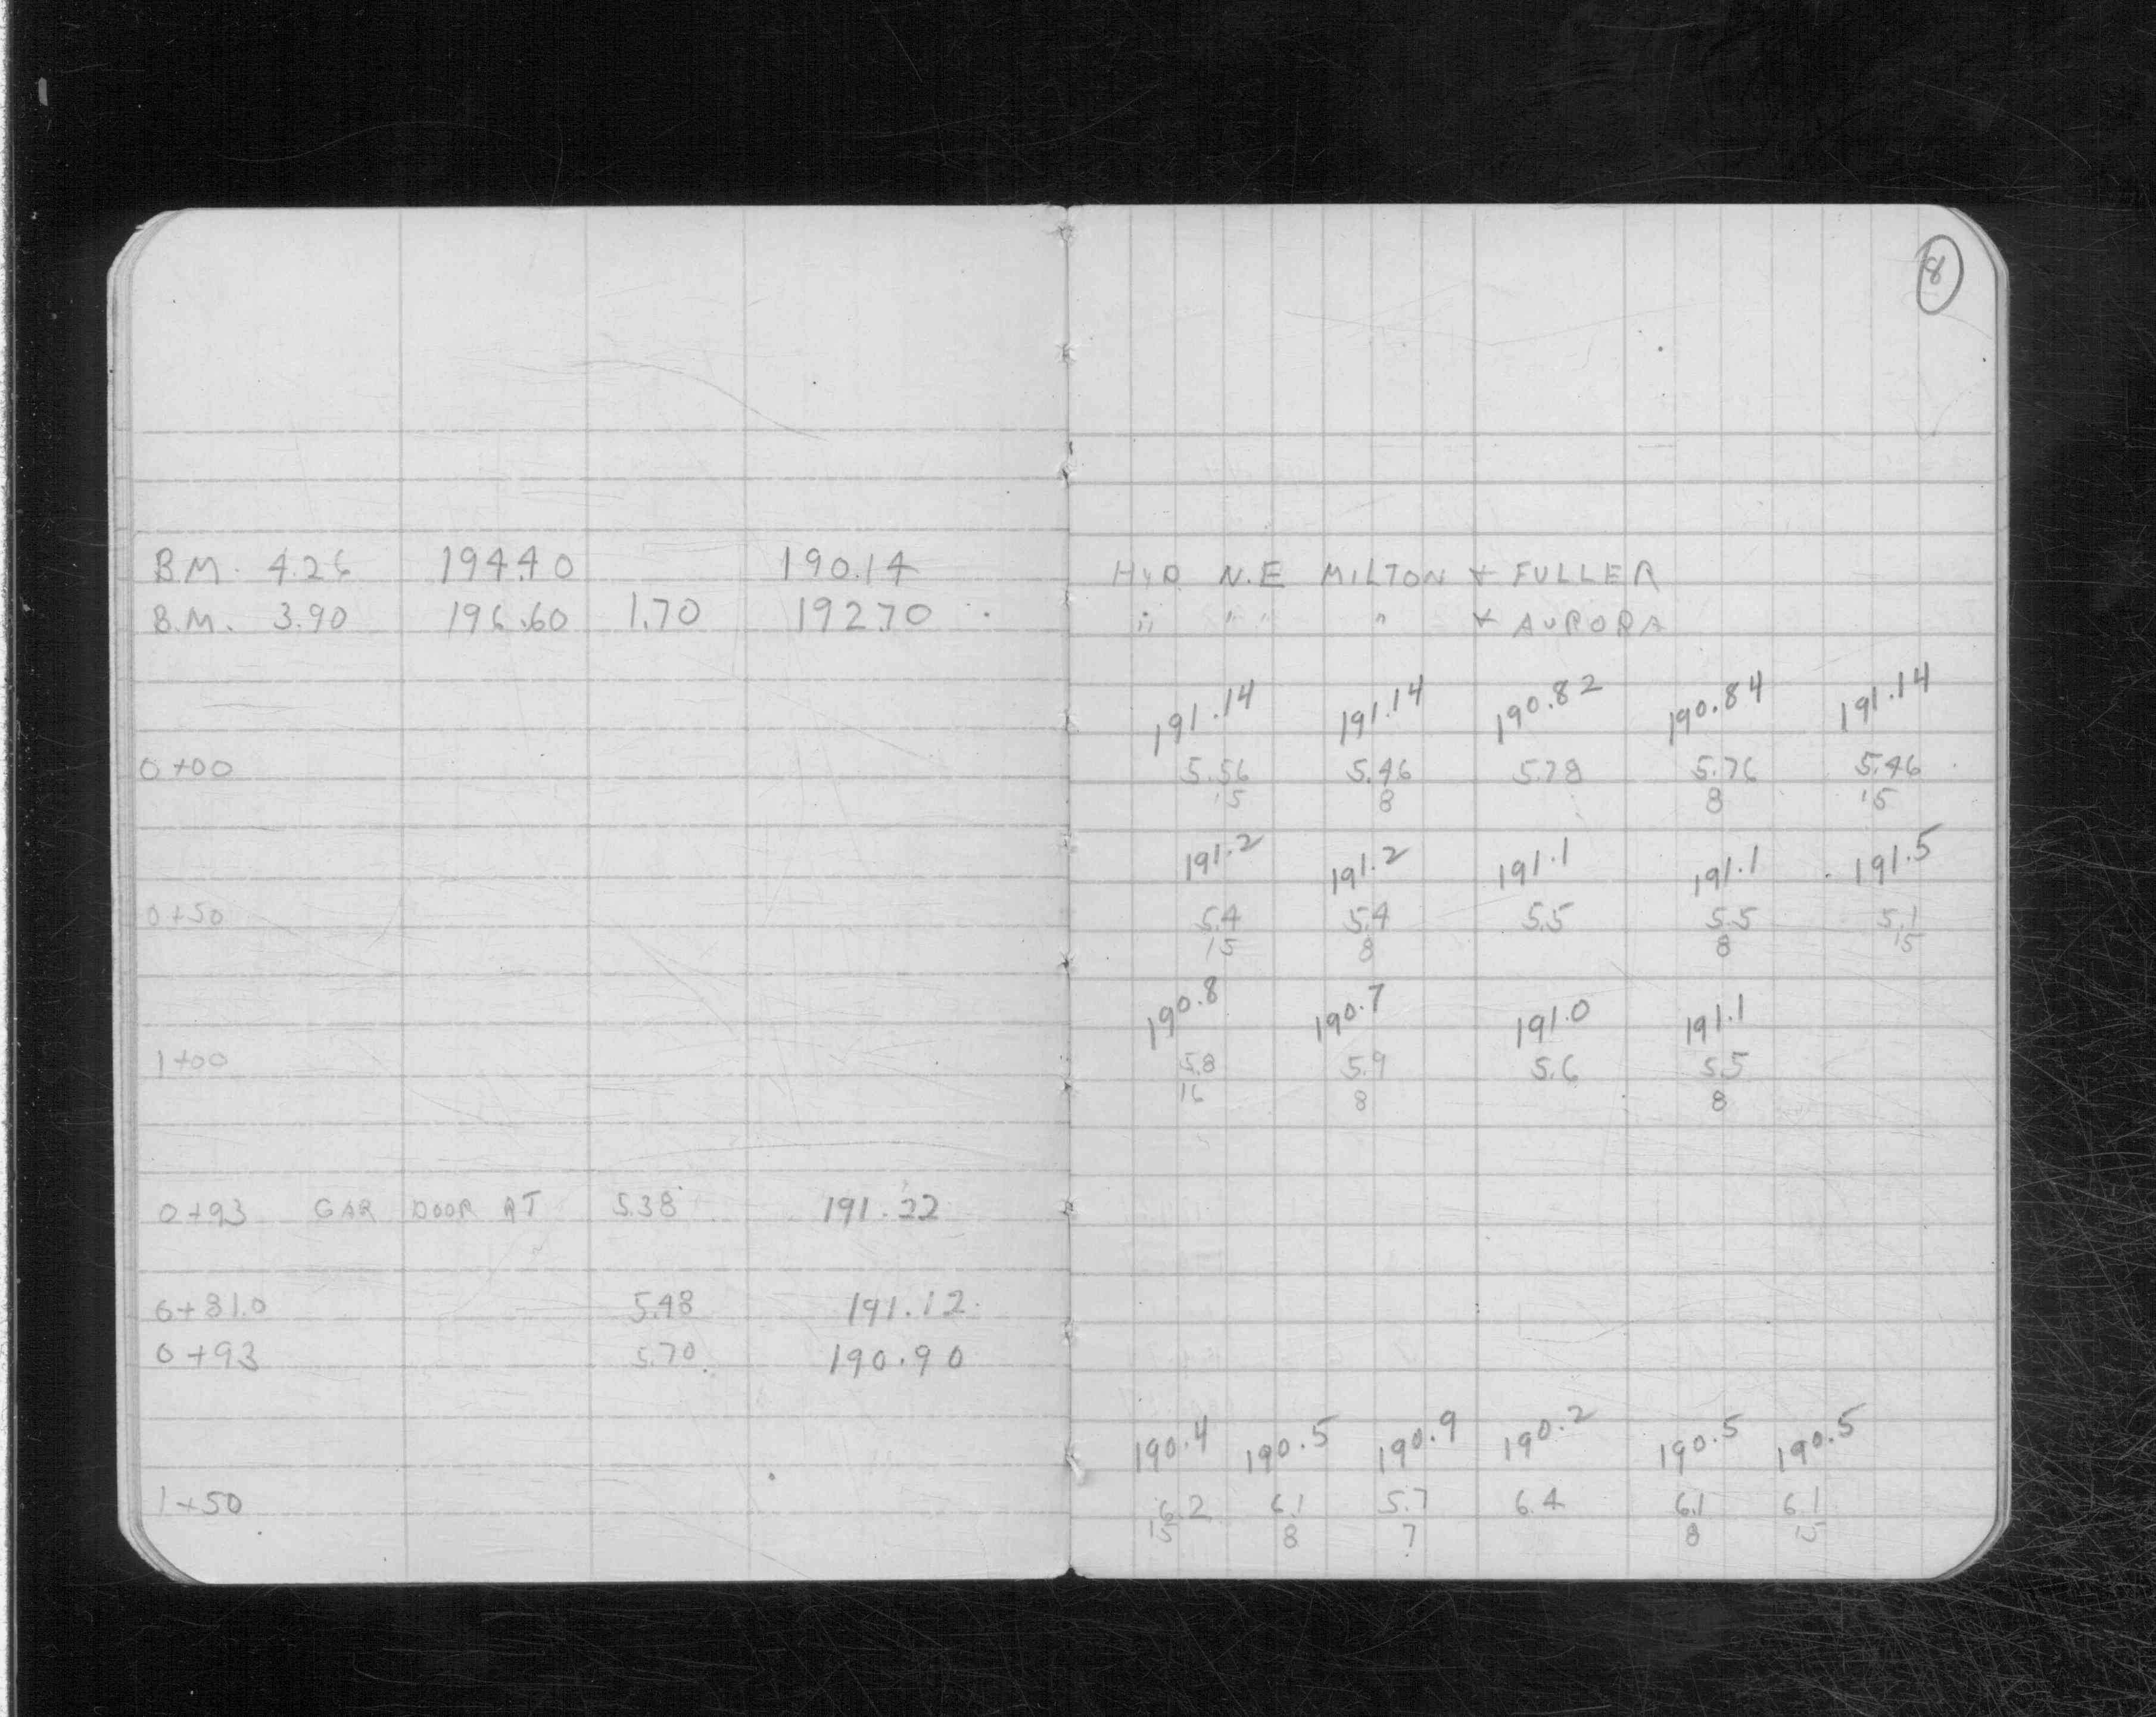 8
B.M. 4.26 194.40 190.14
B.M. 3.90 196.60 1.70 192.70
HYD. N.E MILTON + FULLER
" " " " + AURORA
191.14 191.14 190.82 190.84 191.14
0+00 5.56 5.46 5.78 5.76 5.46
15 8 8 15
191.2 191.2 191.1 191.1 191.5
0+50 5.4 5.4 5.5 5.5 5.1
15 8 8 15
190.8 190.7 191.0 191.1
1+00 5.8 5.9 5.6 5.5
16 8 8
0+93 GAR DOOR AT 5.38 191.22
0+81.0 5.48 191.12
0+93 5.70 190.90
190.4 190.5 190.9 190.2 190.5 190.5
1+50 6.2 6.1 5.7 6.4 6.1 6.1
15 8 7 8 15